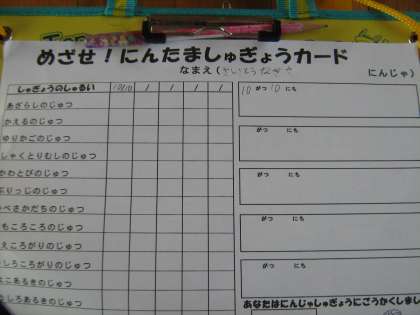 めざせ！にんたましゅぎょうカード
なまえ（さいとうなぎさ にんじゃ）
しゅぎょうのしゅるい 10/10 / / / /
あざらしのじゅつ
かえるのじゅつ
ゆりかごのじゅつ
しゃくとりむしのじゅつ
かわとびのじゅつ
ぶりっじのじゅつ
かべさかだちのじゅつ
いもころころのじゅつ
まえころがりのじゅつ
うしろころがりのじゅつ
よこあるきのじゅつ
うしろあるきのじゅつ
10がつ10にち
がつ にち
がつ にち
がつ にち
がつ にち
あなたはにんじゃしゅぎょうにごうかくしま